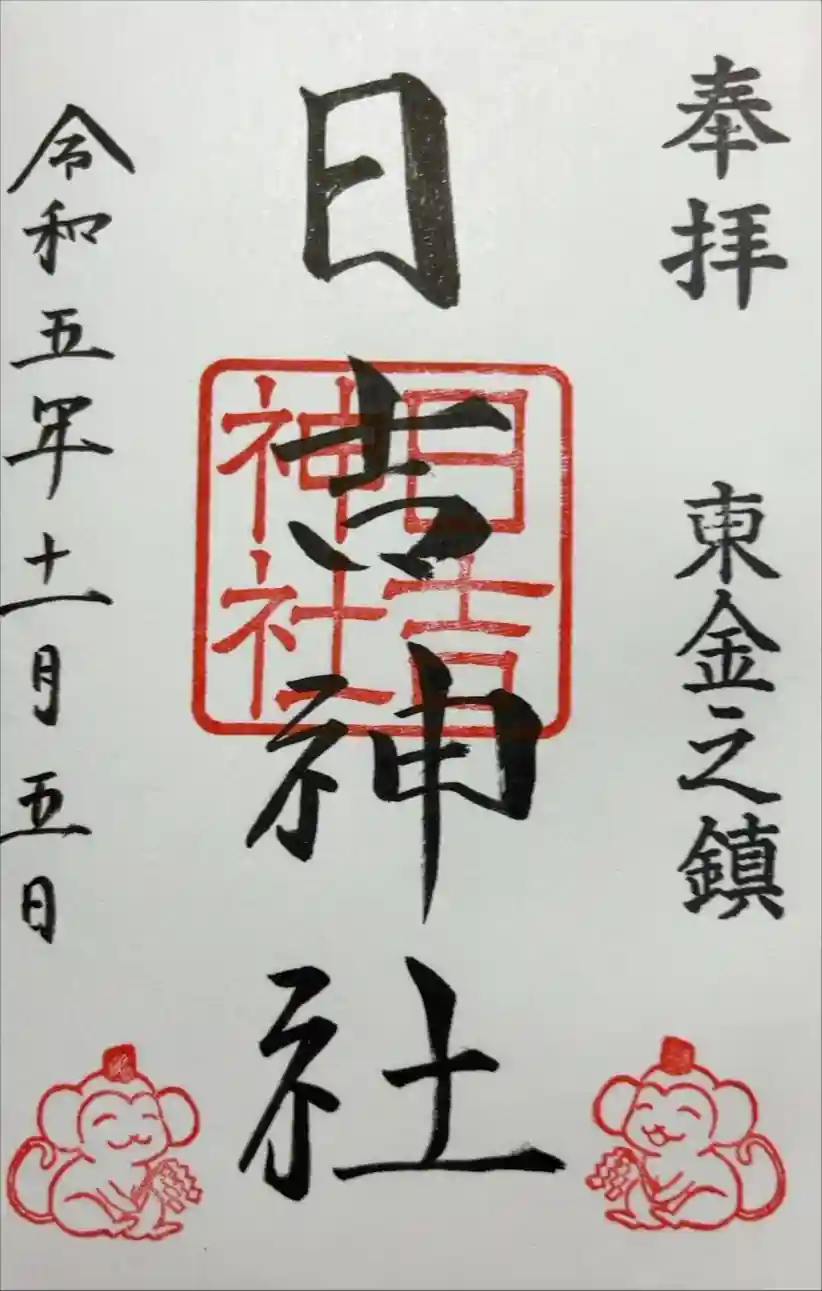 奉拝 東金之鎮
日吉神社
日吉神社
令和五年十一月五日